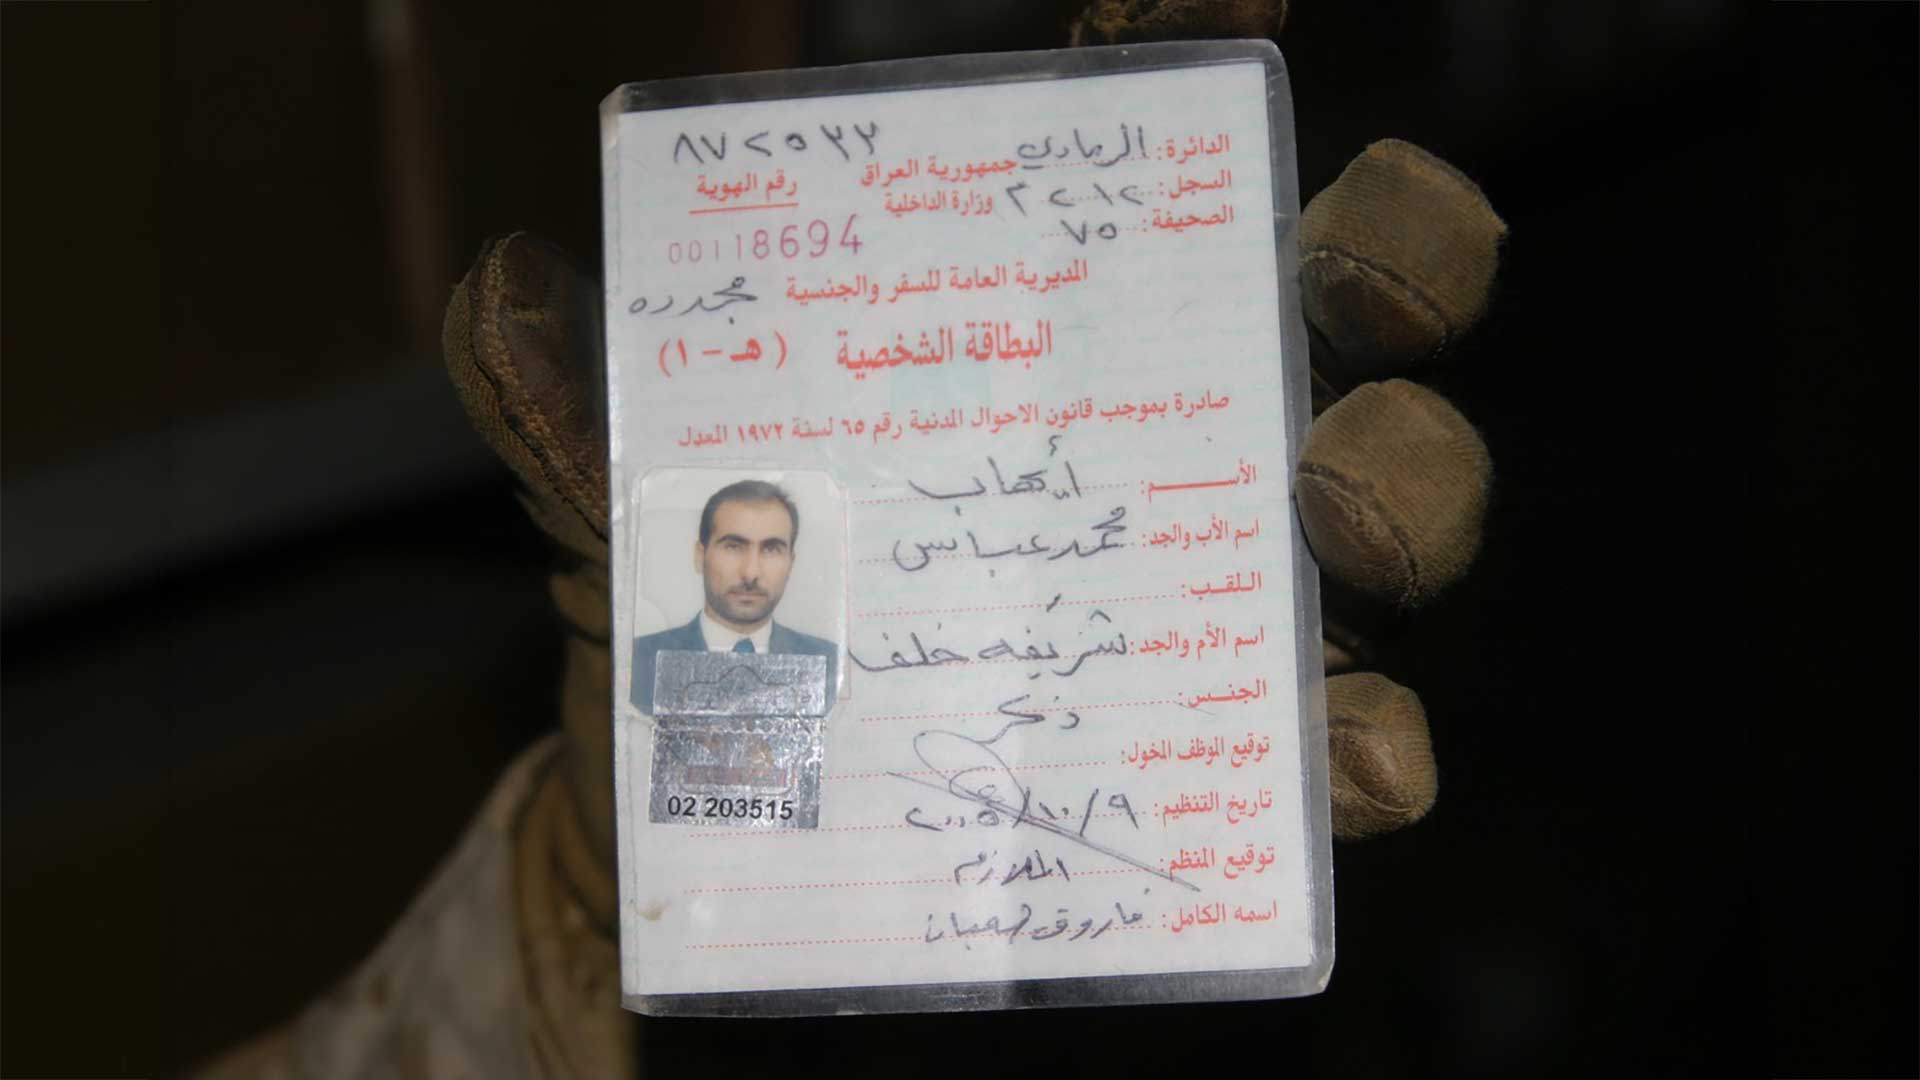 الدائرة: الرمادي
جمهورية العراق
٨٧٢٥٣٣
السجل: ٣٢٠١٢
وزارة الداخلية
رقم الهوية
الصحيفة: ٧٥
00118694
المديرية العامة للسفر والجنسية مجدده
البطاقة الشخصية ( هـ - ١ )
صادرة بموجب قانون الاحوال المدنية رقم ٦٥ لسنة ١٩٧٢ المعدل
الأســـم:
اسم الأب والجد: محمد عباس
اللقب:
اسم الأم والجد: شريفه خلف
الجنس: ذكر
توقيع الموظف المخول:
تاريخ التنظيم: ٩/١٠/٢٠٠٥
02 203515
توقيع المنظم: الملازم
اسمه الكامل: فاروق شعبان